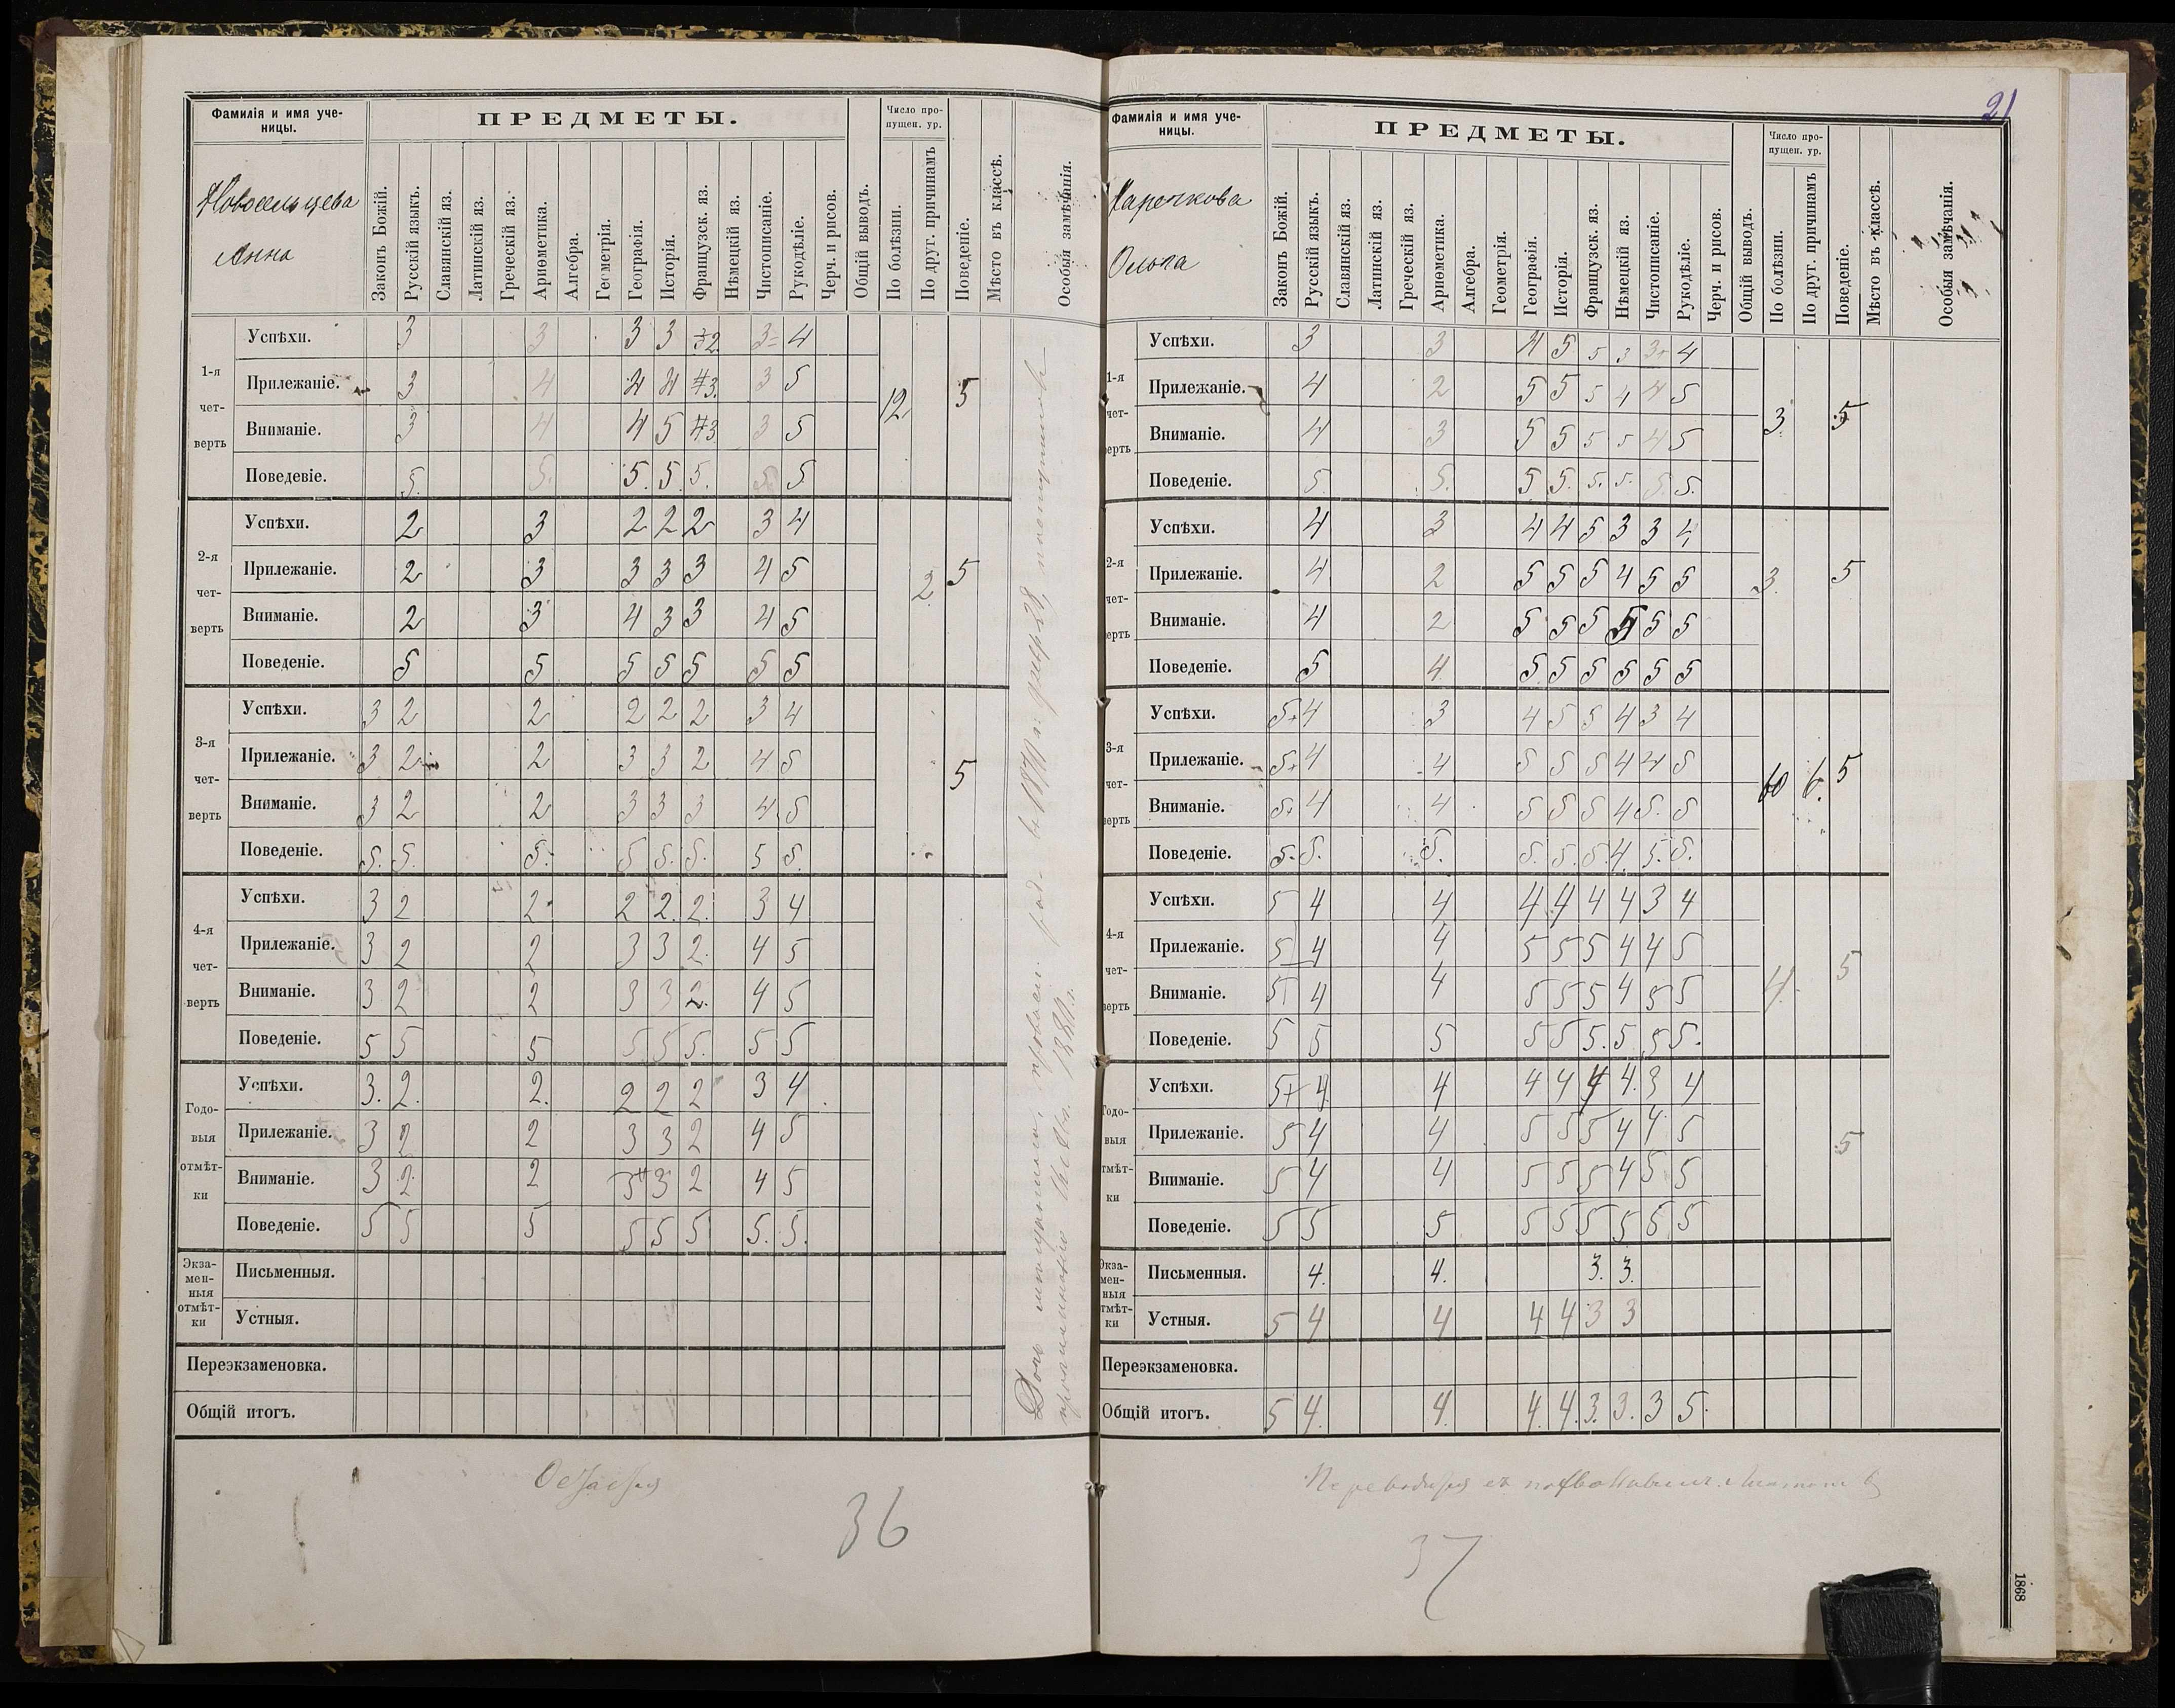 21
Фамилія и имя уче-
ницы.
ПРЕДМЕТЫ.
Число про-
пущен. ур.
Новосельцева
Анна
Законъ Божій.
Русскій языкъ.
Славянскій яз.
Латинскій яз.
Греческій яз.
Ариѳметика.
Алгебра.
Геометрія.
Географія.
Исторія.
Французск. яз.
Нѣмецкій яз.
Чистописаніе.
Рукодѣліе.
Черч. и рисов.
Общій выводъ.
По болѣзни.
По друг. причинамъ
Поведеніе.
Мѣсто въ классѣ.
Особыя замѣчанія.
1-я чет- верть
Успѣхи. 3 3 3 3 2 3= 4
Прилежаніе. 3 4 4 4 3. 3 5
Вниманіе. 3 4 4 5 3 3 5
Поведеніе. 5. 5. 5. 5. 5. 5
12 5
2-я чет- верть
Успѣхи. 2 3 2 2 2 3 4
Прилежаніе. 2 3 3 3 3 4 5
Вниманіе. 2 3 4 3 3 4 5
Поведеніе. 5 5 5 5 5 5 5
2. 5
3-я чет- верть
Успѣхи. 3 2 2 2 2 2 3 4
Прилежаніе. 3 2 2 3 3 2 4 5
Вниманіе. 3 2 2 3 3 3 4 5
Поведеніе. 5. 5. 5. 5 5. 5. 5 5.
5
4-я чет- верть
Успѣхи. 3 2 2 2 2. 2. 3 4
Прилежаніе. 3 2 2 3 3 2. 4 5
Вниманіе. 3 2 2 3 3 2. 4 5
Поведеніе. 5 5 5 5 5 5. 5 5
Годо- выя отмѣт- ки
Успѣхи. 3. 2. 2. 2 2 2 3 4
Прилежаніе. 3 2 2 3 3 2 4 5
Вниманіе. 3 2. 2 3 2 4 5
Поведеніе. 5 5 5 5 5 5 5. 5.
Экза- мен- ныя отмѣт- ки
Письменныя.
Устныя.
Переэкзаменовка.
Общій итогъ.
36
Фамилія и имя уче-
ницы.
ПРЕДМЕТЫ.
Число про-
пущен. ур.
Ольга
Законъ Божій.
Русскій языкъ.
Славянскій яз.
Латинскій яз.
Греческій яз.
Ариѳметика.
Алгебра.
Геометрія.
Географія.
Исторія.
Французск. яз.
Нѣмецкій яз.
Чистописаніе.
Рукодѣліе.
Черч. и рисов.
Общій выводъ.
По болѣзни.
По друг. причинамъ
Поведеніе.
Мѣсто въ классѣ.
Особыя замѣчанія.
1-я чет- ерть
Успѣхи. 3 3 4 5 5 3 3+ 4
Прилежаніе. 4 2 5 5 5 4 4 5
Вниманіе. 4 3 5 5 5 5 4 5
Поведеніе. 5. 5. 5. 5. 5. 5. 5. 5.
3. 5
2-я чет- ерть
Успѣхи. 4 3 4 4 5 3 3 4
Прилежаніе. 4 2 5 5 5 4 5 5
Вниманіе. 4 2 5 5 5 5 5 5
Поведеніе. 5 4. 5. 5 5 5 5 5
3. 5
3-я чет- верть
Успѣхи. 5+ 4 3 4 5 5 4 3 4
Прилежаніе. 5+ 4 4 5 5 5 4 4 5
Вниманіе. 5+ 4 4 5 5 5 4 5. 5
Поведеніе. 5. 5. 5. 5. 5. 5. 4. 5. 5.
6. 5
4-я чет- ерть
Успѣхи. 5 4 4 4 4 4 4 3 4
Прилежаніе. 5 4 4 5 5 5 4 4 5
Вниманіе. 5 4 4 5 5 5 4 5 5
Поведеніе. 5 5 5 5 5 5. 5. 5 5.
4. 5
Годо- выя тмѣт- ки
Успѣхи. 5+ 4 4 4 4 4 4. 3 4
Прилежаніе. 5 4 4 5 5 5 4 4 5
Вниманіе. 5 4 4 5 5 5 4 5 5
Поведеніе. 5 5 5 5 5 5 5 5 5
5
Экза- мен- ныя тмѣт- ки
Письменныя. 4. 4. 3. 3.
Устныя. 5 4 4 4 4 3 3
Переэкзаменовка.
Общій итогъ. 5 4. 4. 4. 4. 3. 3. 3 5.
37
1868